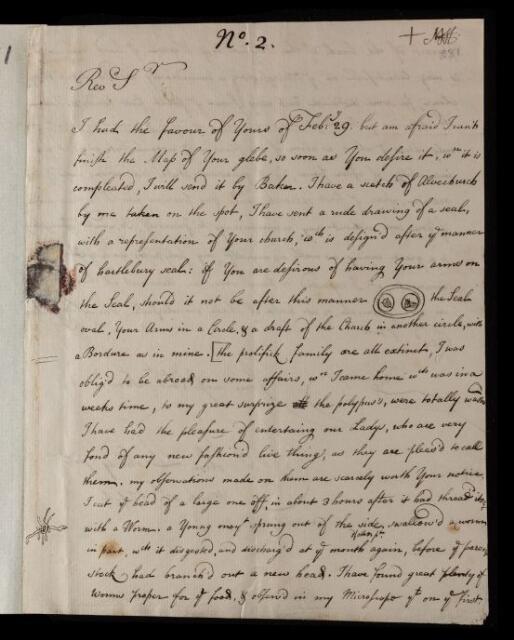 No. 2.
Rev Sr
I had the favour of Yours of Feb:y 29. but am afraid I can't
finish the Map of Your glebe, so soon as You desire it, wn it is
compleated, I will send it by Baker. I have a scetch of Alvechurch
by me taken on the spot, I have sent a rude drawing of a seal,
with a representation of Your church, wch is design'd after ye manner
of hartlebury seal: if You are desirous of having Your arms on
the Seal, should it not be after this manner the Seal
oval, Your Arms in a Circle, & a draft of the Church in another circle, with
a Bordure as in mine. [the prolifick family are all extinct, I was
oblig'd to be abroad on some affairs, wn I came home wch was in a
weeks time, to my great surprize the polypus's, were totally
I have had the pleasure of entertaing our Ladys, who are very
fond of any new fashion'd live thing, as they are pleas'd to call
them. my observations made on them are scarcely worth Your notice,
I cut ye head of a large one off, in about 3 hours after it had
with a Worm. a Young one yt sprung out of the side, swallow'd a worm
in part, wch it digested, and discharg'd at ye mouth again, before ye parent
stock had branch'd out a new head. I have found great plenty of
Worms proper for ye food, & observ'd in my Microscope yt on ye first